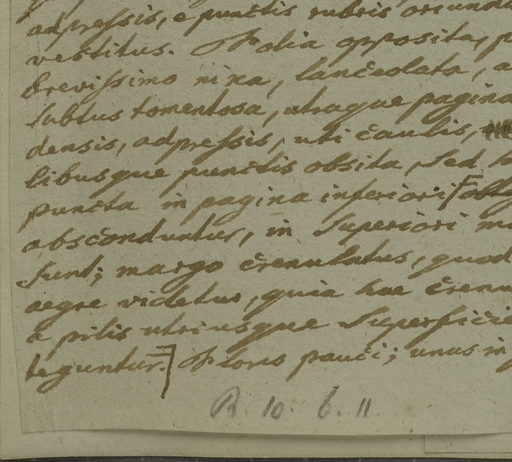 adpressis, e punctis rubris oriund
vestitus. Folia opposita, p
brevissimo nixa, lanceolata, a
subtus tomentosa, utraque pagina
densis, adpressis, uti caulis,
libusque punctis obsita, sed
puncta in pagina inferiori
absconduntur, in superiori m
sunt; margo crenulatus, quod
aegre videtur, quia hae crenu
a pilis utriusque superficie
teguntur.] Flores pauci; unus in
R. 10. 6. 11